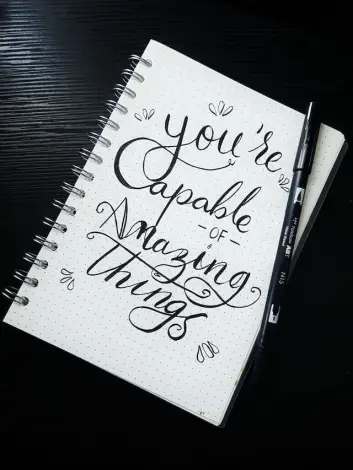 you're
Capable
- OF -
Amazing
Things
N15